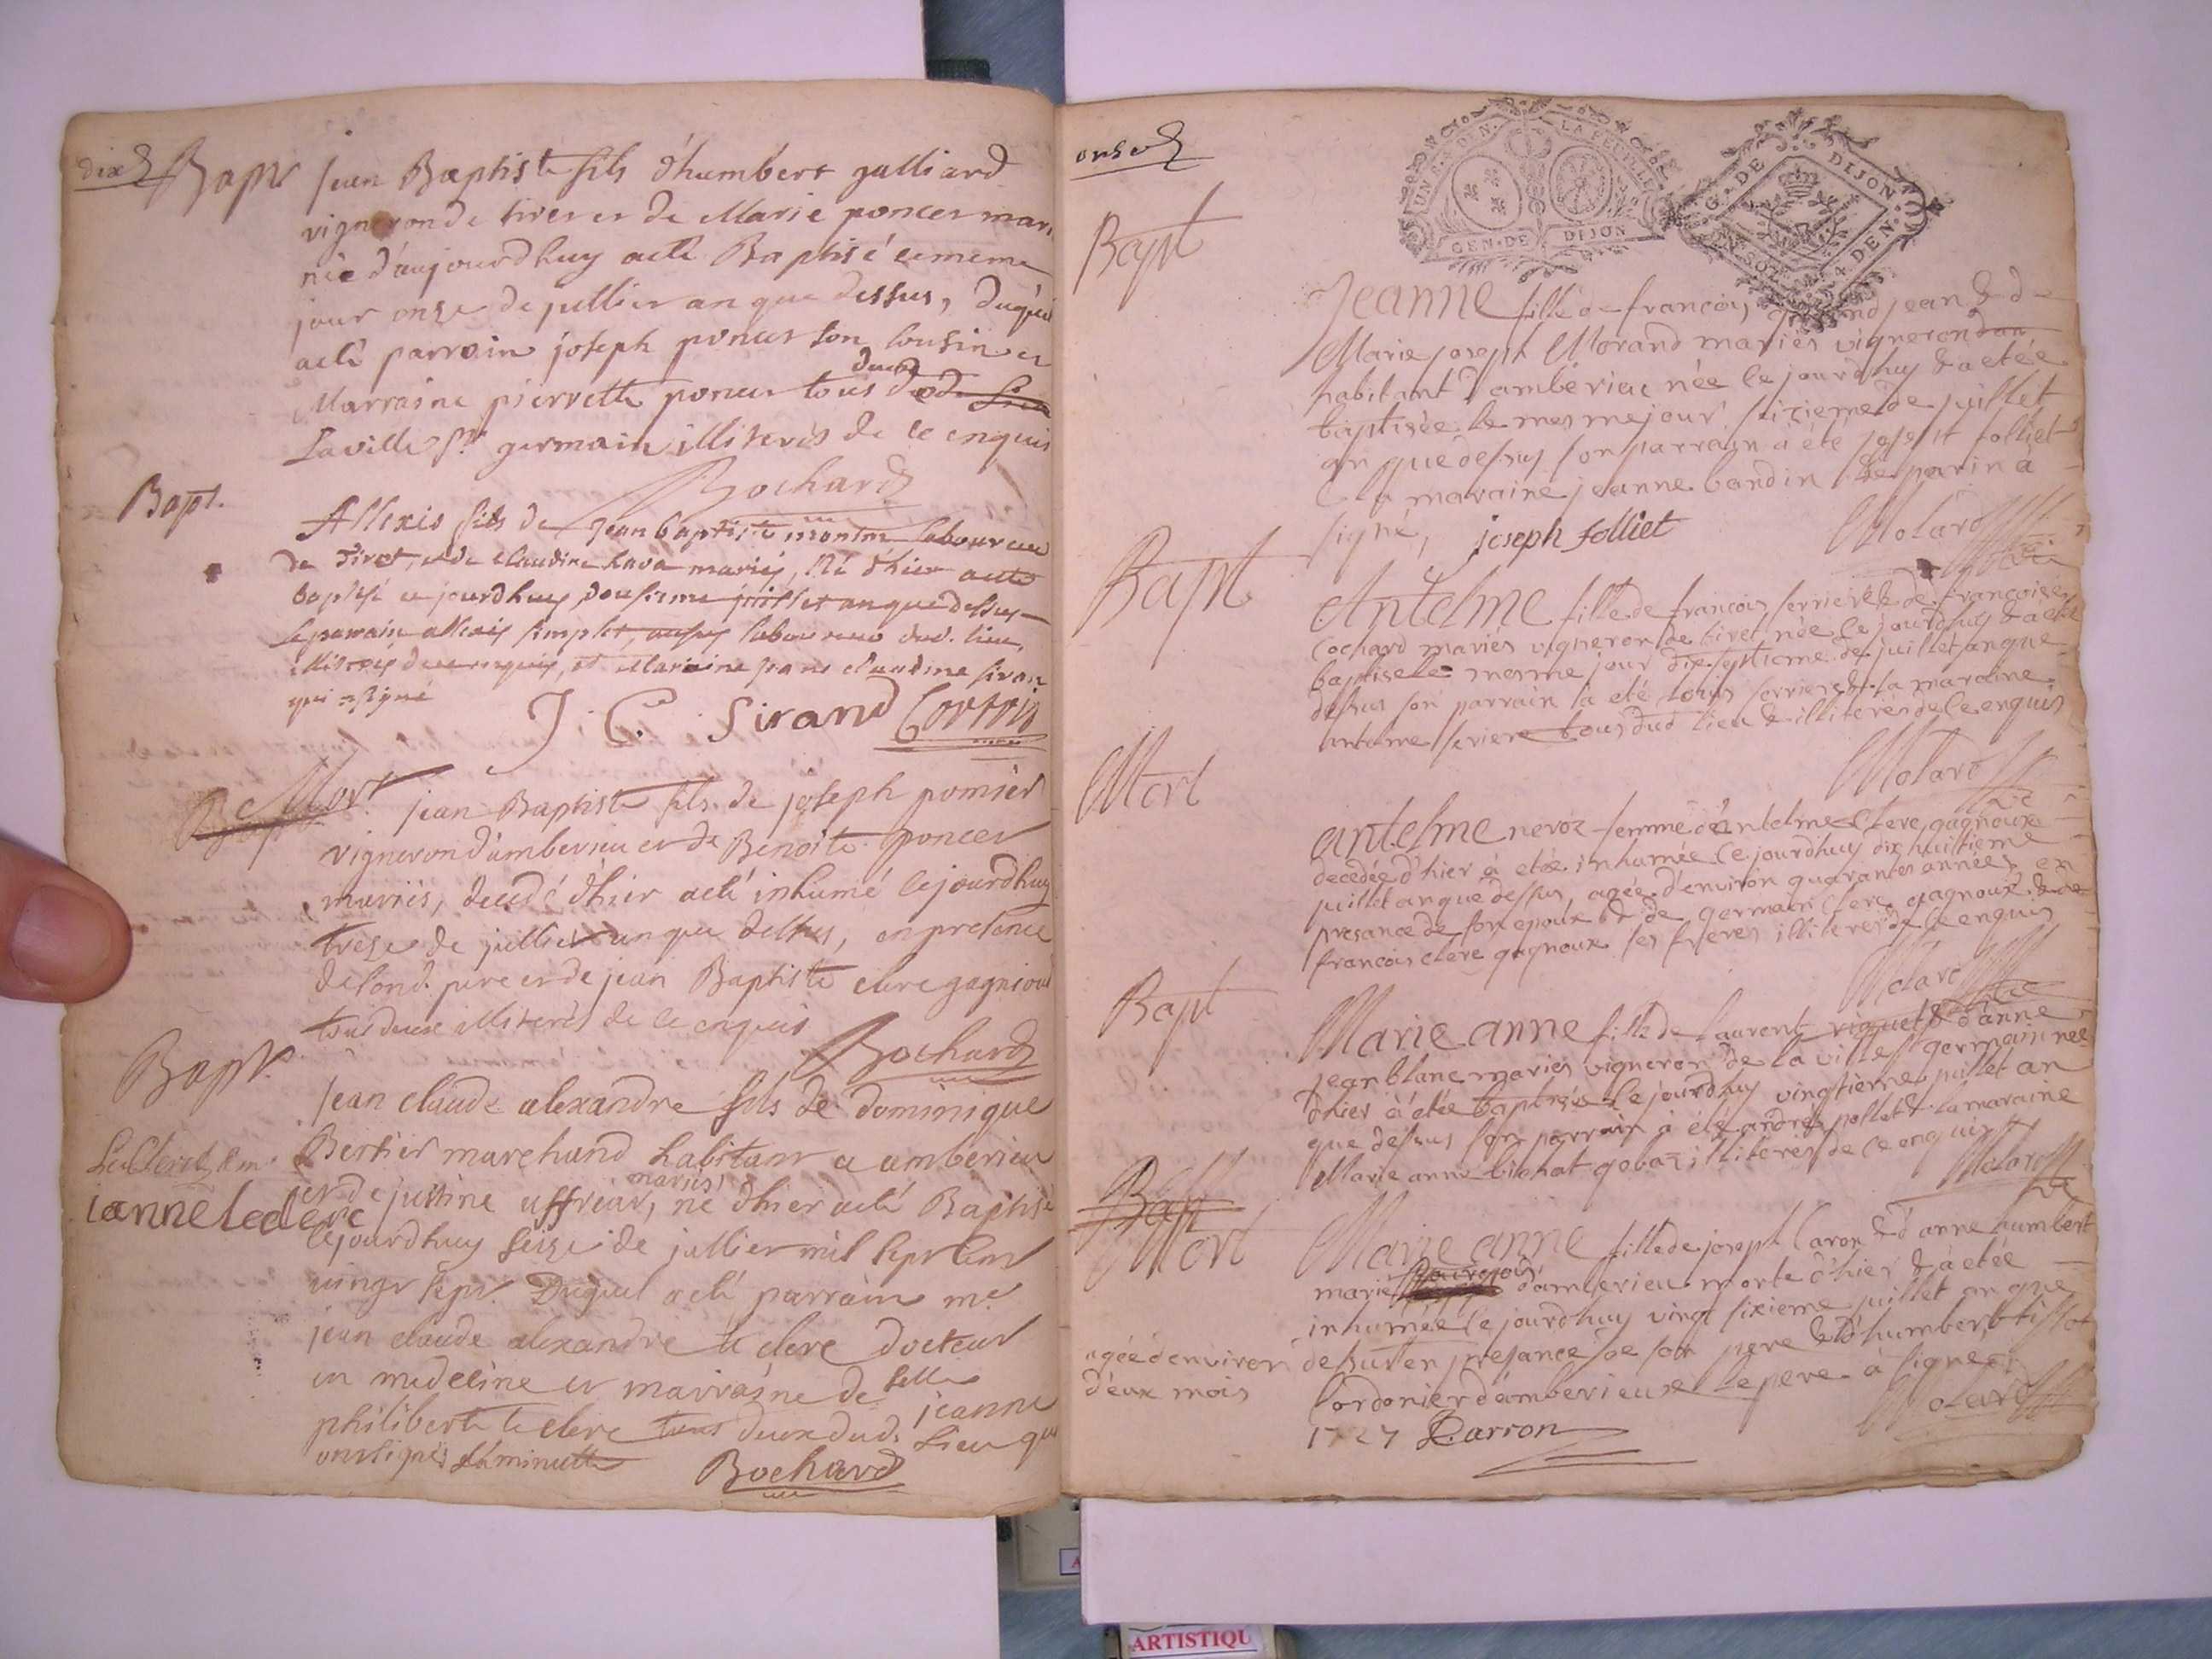 dix
Bapt
Jean Baptiste fils d'humbert galliard
vigneron de tiret et de Marie poncet mari
née d'aujourdhuy aeté Baptisé ce meme
jour onze de juillet an que dessus, duquel
aeté parrain joseph poncet son cousin et
Marraine pierrette poncet tous dud
Laville St germain illiterés de ce enquis
Bochard
Bapt.
Allexis fils de jean baptiste laboureur
de Tiret, et de Claudine mariés, Né d'hier aeté
baptisé ce jourdhuy dousieme juillet an que dessus
le parain allexis simplet, laboureur dud. lieu
illiterés de ce enquis, et Maraine claudine siran
qui a signé
J. C. Sirand
Mort
jean Baptiste fils de joseph pomier
vigneron d'amberieu et de Benoite poncet
mariés, decedé d'hier aeté inhumé cejourdhuy
treze de juillet an que dessus, en presence
de sond. pere et de jean Baptiste clere gagnioud
tous deux illiterés de ce enquis
Bochard
Bapt.
Jean claude alexandre fils de dominique
Bertier marchand habitant a amberieu
et de justine uffreur, mariés, né d'hier aeté Baptisé
ianne leclerc
cejourdhuy seize de juillet mil sept cent
vingt sept. Duquel aeté parrain me
jean claude alexandre le clerc docteur
en medecine et marraine delle jeanne
philiberte le clerc tous deux dud. lieu qui
ont signés la minutte
Bochard
onse
Bapt
UN S. 4 DEN. LA FEUILLE
GEN. DE DIJON
G. DE DIJON
UN SOL 4 DEN.
Jeanne fille de francois jean & de
Marie joseph Morand mariés vigneron
habitant d'amberieu née ce jourdhuy & a etée
baptisée le mesme jour sizieme de juillet
an que dessus son parrain à été joseph folliet
& la maraine jeanne bondin le parin à
signé, joseph folliet
Molard
Bapt
Antelme fille de francois serriere & de francoise
Cochard mariés vigneron de tiret, née ce jourdhuy & a eté
baptisé le mesme jour dix septieme de juillet an que
dessus son parrain à eté louis serriere & la maraine
antelme seriere tous dud lieu & illiterés de ce enquis
Molard
Mort
antelme nevoz femme d'antelme clere gagnoux
decedée d'hier à etée inhumée ce jourdhuy dix huittieme
juillet an que dessus agée d'environ quarantes années en
presance de son epoux & de germain clere gagnoux & de
francois clere gagnoux ses freres illiterés de ce enquis
Molard
Bapt
Marie anne fille de laurent viguet & d'anne
jean blanc mariés vigneron de la ville st germain née
d'hier à étée baptisée ce jourdhuy vingtieme juillet an
que dessus son parrain à été andré pollet & la maraine
Marie anne gobaz illiterés de ce enquis
Molard
Bapt
Mort
Marie anne fille de joseph Caron & d'anne humbert
mariés d'amberieu morte d'hier & à etée
inhumée ce jourdhuy vingt sixieme juillet an que
agée d'environ
d'eux mois
dessus en presance de son pere & d'humbert tissot
Cordonier d'amberieux le pere à signé
1727 Carron
Molard
ARTISTIQU